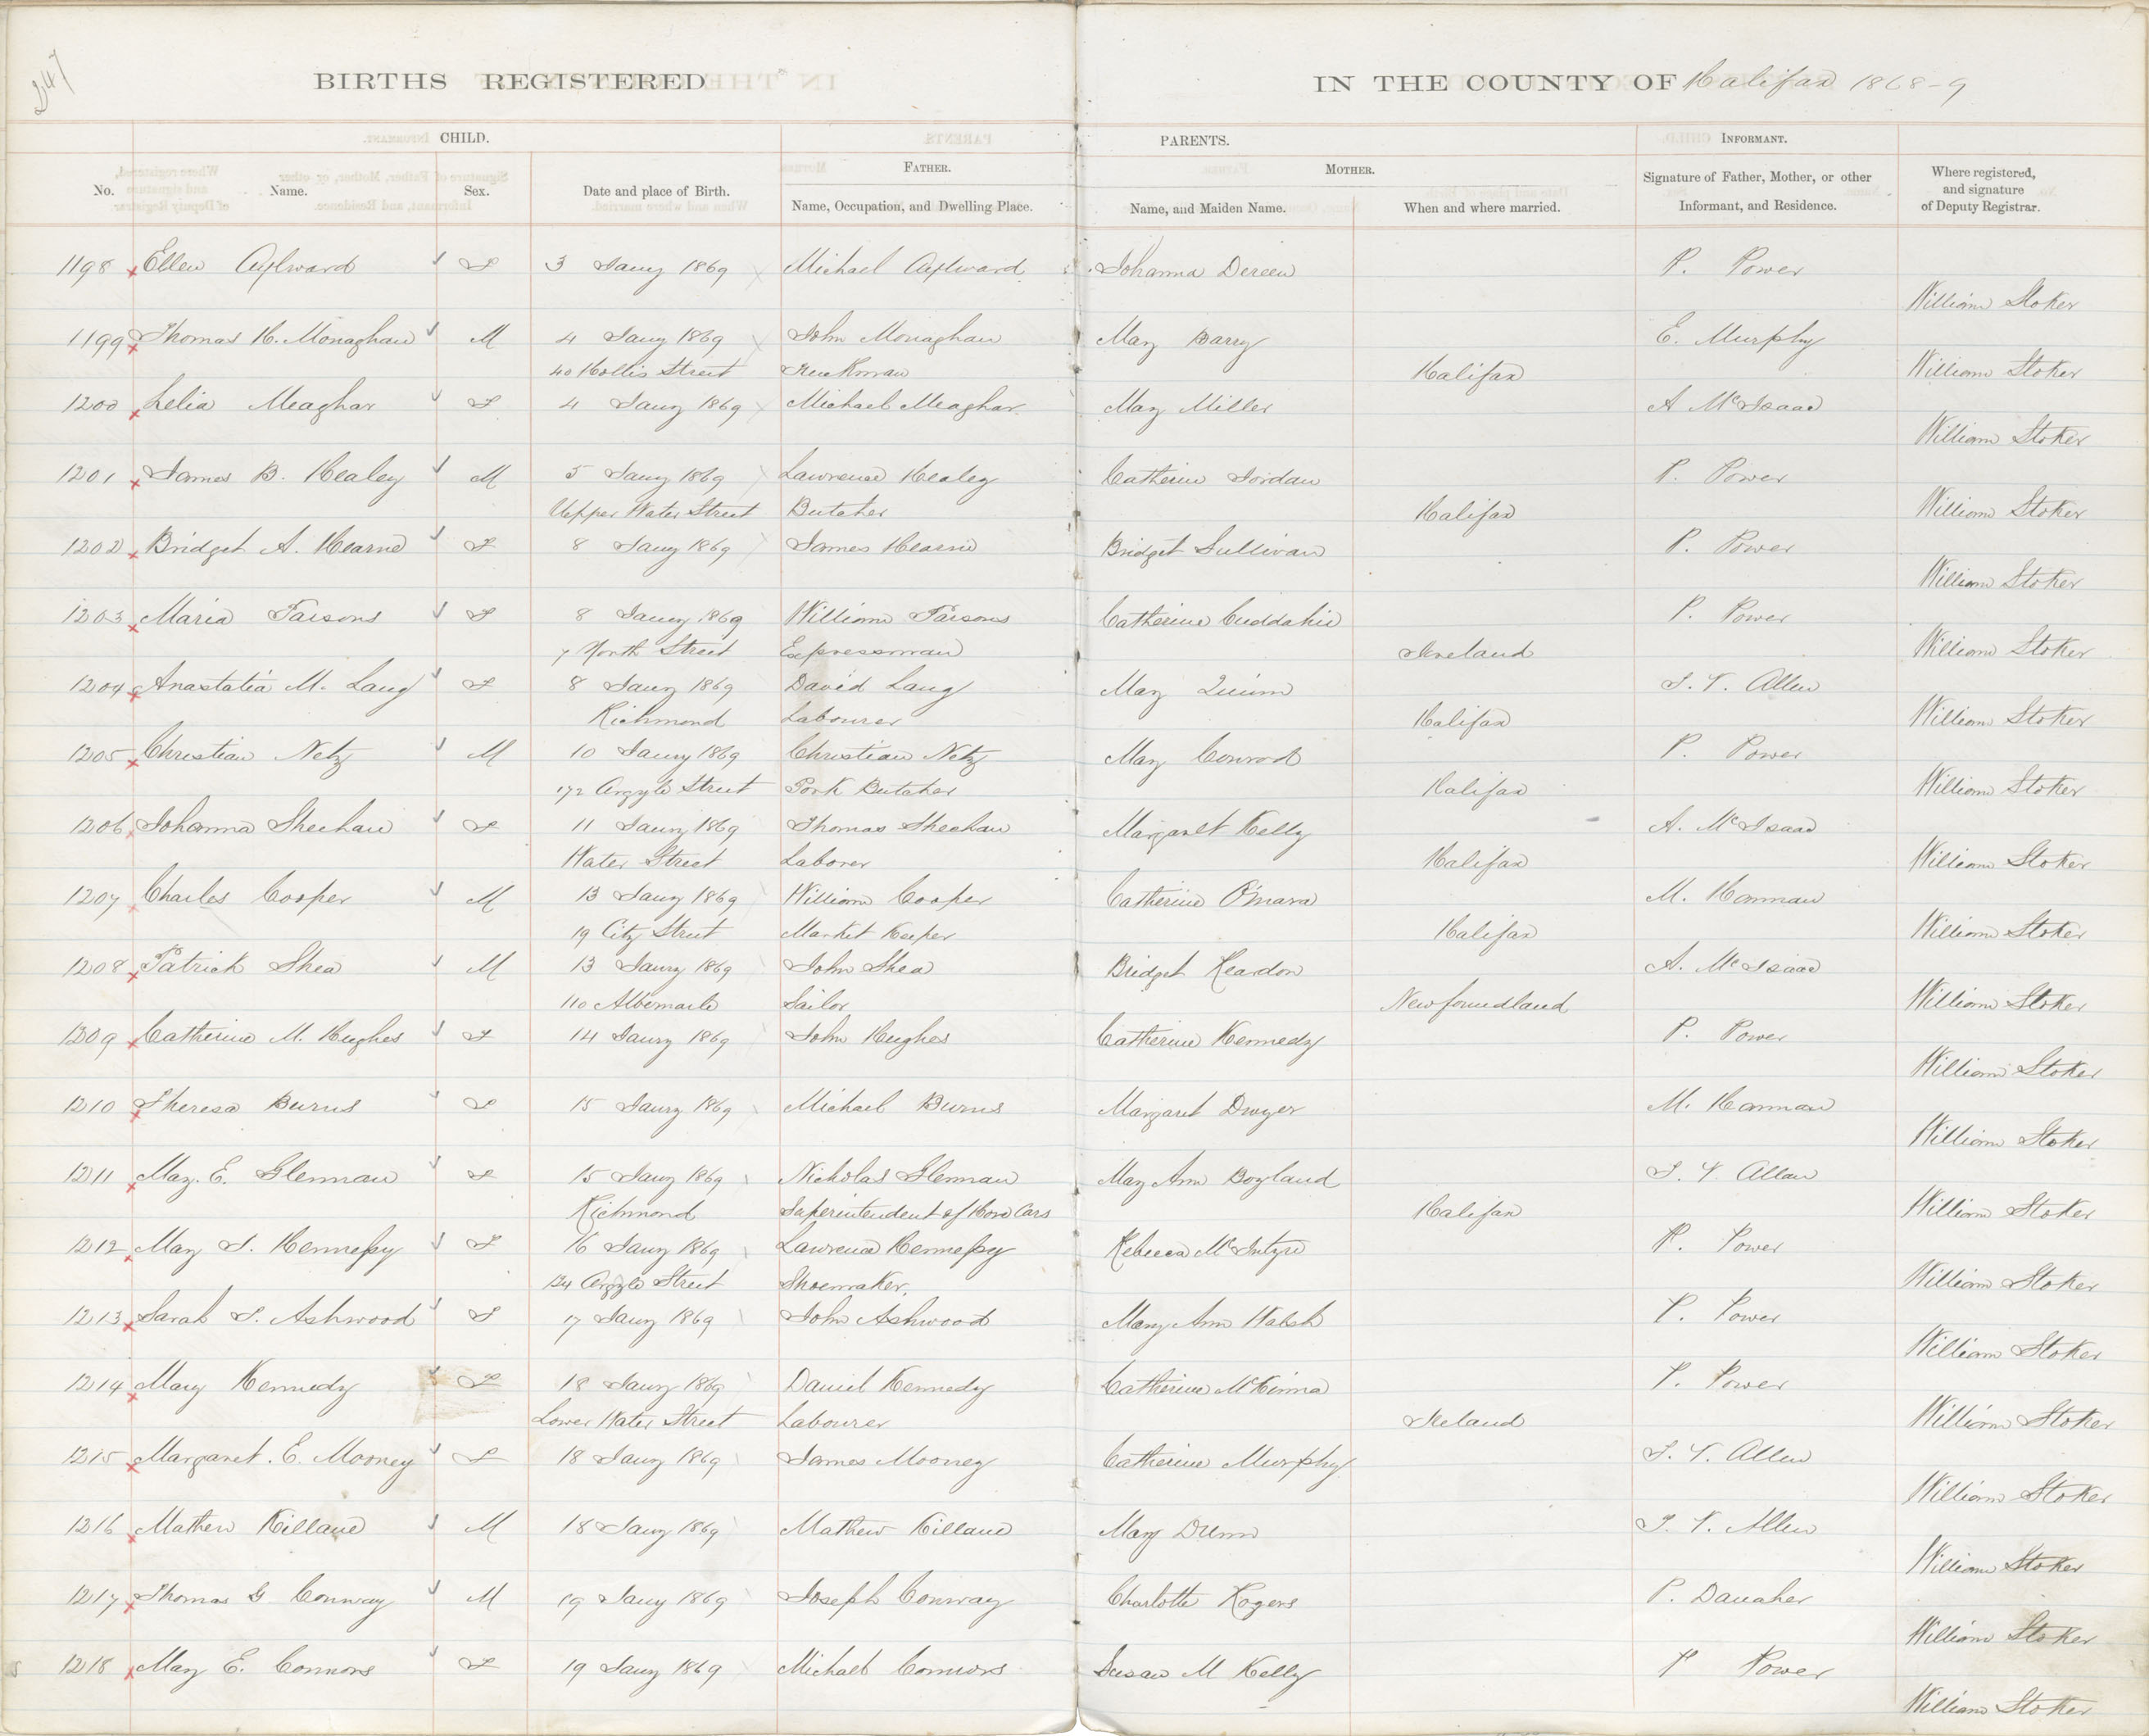 247
BIRTHS REGISTERED
IN THE COUNTY OF Halifax 1868-9
CHILD.
PARENTS.
INFORMANT.
No.
Name.
Sex.
Date and place of Birth.
FATHER.
Name, Occupation, and Dwelling Place.
MOTHER.
Name, and Maiden Name.
When and where married.
Signature of Father, Mother, or other
Informant, and Residence.
Where registered,
and signature
of Deputy Registrar.
1198 Ellen Aylward F 3 Jany 1869 Michael Aylward Johanna Dereen P. Power
William Stoker
1199 Thomas H. Monaghan M 4 Jany 1869 John Monaghan Mary Barry E. Murphy
40 Hollis Street Truckman Halifax William Stoker
1200 Lelia Meaghar F 4 Jany 1869 Michael Meaghar Mary Miller A McIsaac
William Stoker
1201 James B. Healey M 5 Jany 1869 Lawrence Healey Catherine Jordan P. Power
Upper Water Street Butcher Halifax William Stoker
1202 Bridget A. Hearne F 8 Jany 1869 James Hearne Bridget Sullivan P. Power
William Stoker
1203 Maria Parsons F 8 Jany 1869 William Parsons Catherine Cuddahie P. Power
7 North Street Expressman Ireland William Stoker
1204 Anastatia M. Lang F 8 Jany 1869 David Lang Mary Quinn J. T. Allen
Richmond Labourer Halifax William Stoker
1205 Christian Netz M 10 Jany 1869 Christian Netz Mary Conrod P. Power
172 Argyle Street Pork Butcher Halifax William Stoker
1206 Johanna Sheehan F 11 Jany 1869 Thomas Sheehan Margaret Kelly A. McIsaac
Water Street Laborer Halifax William Stoker
1207 Charles Cooper M 13 Jany 1869 William Cooper Catherine O'Mara M. Hannan
19 City Street Market Keeper Halifax William Stoker
1208 Patrick Shea M 13 Jany 1869 John Shea Bridget Reardon A. McIsaac
110 Albemarle Sailor Newfoundland William Stoker
1209 Catherine M. Hughes F 14 Jany 1869 John Hughes Catherine Kennedy P. Power
William Stoker
1210 Theresa Burns F 15 Jany 1869 Michael Burns Margaret Dwyer M. Hannan
William Stoker
1211 Mary E. Glennan F 15 Jany 1869 Nicholas Glennan Mary Ann Boyland J. T. Allan
Richmond Superintendent of Horse Cars Halifax William Stoker
1212 Mary J. Hennessy F 16 Jany 1869 Lawrence Hennessy Rebecca McIntyre P. Power
124 Argyle Street Shoemaker. William Stoker
1213 Sarah J. Ashwood F 17 Jany 1869 John Ashwood Mary Ann Walsh P. Power
William Stoker
1214 Mary Kennedy F 18 Jany 1869 Daniel Kennedy Catherine McKinna P. Power
Lower Water Street Labourer Ireland William Stoker
1215 Margaret. E. Mooney F 18 Jany 1869 James Mooney Catherine Murphy J. T. Allen
William Stoker
1216 Mathew Killane M 18 Jany 1869 Mathew Killane Mary Dunn J. T. Allen
William Stoker
1217 Thomas G Conway M 19 Jany 1869 Joseph Conway Charlotte Rogers P. Danaher
William Stoker
1218 Mary E. Connors F 19 Jany 1869 Michael Connors Susan M Kelly P Power
William Stoker